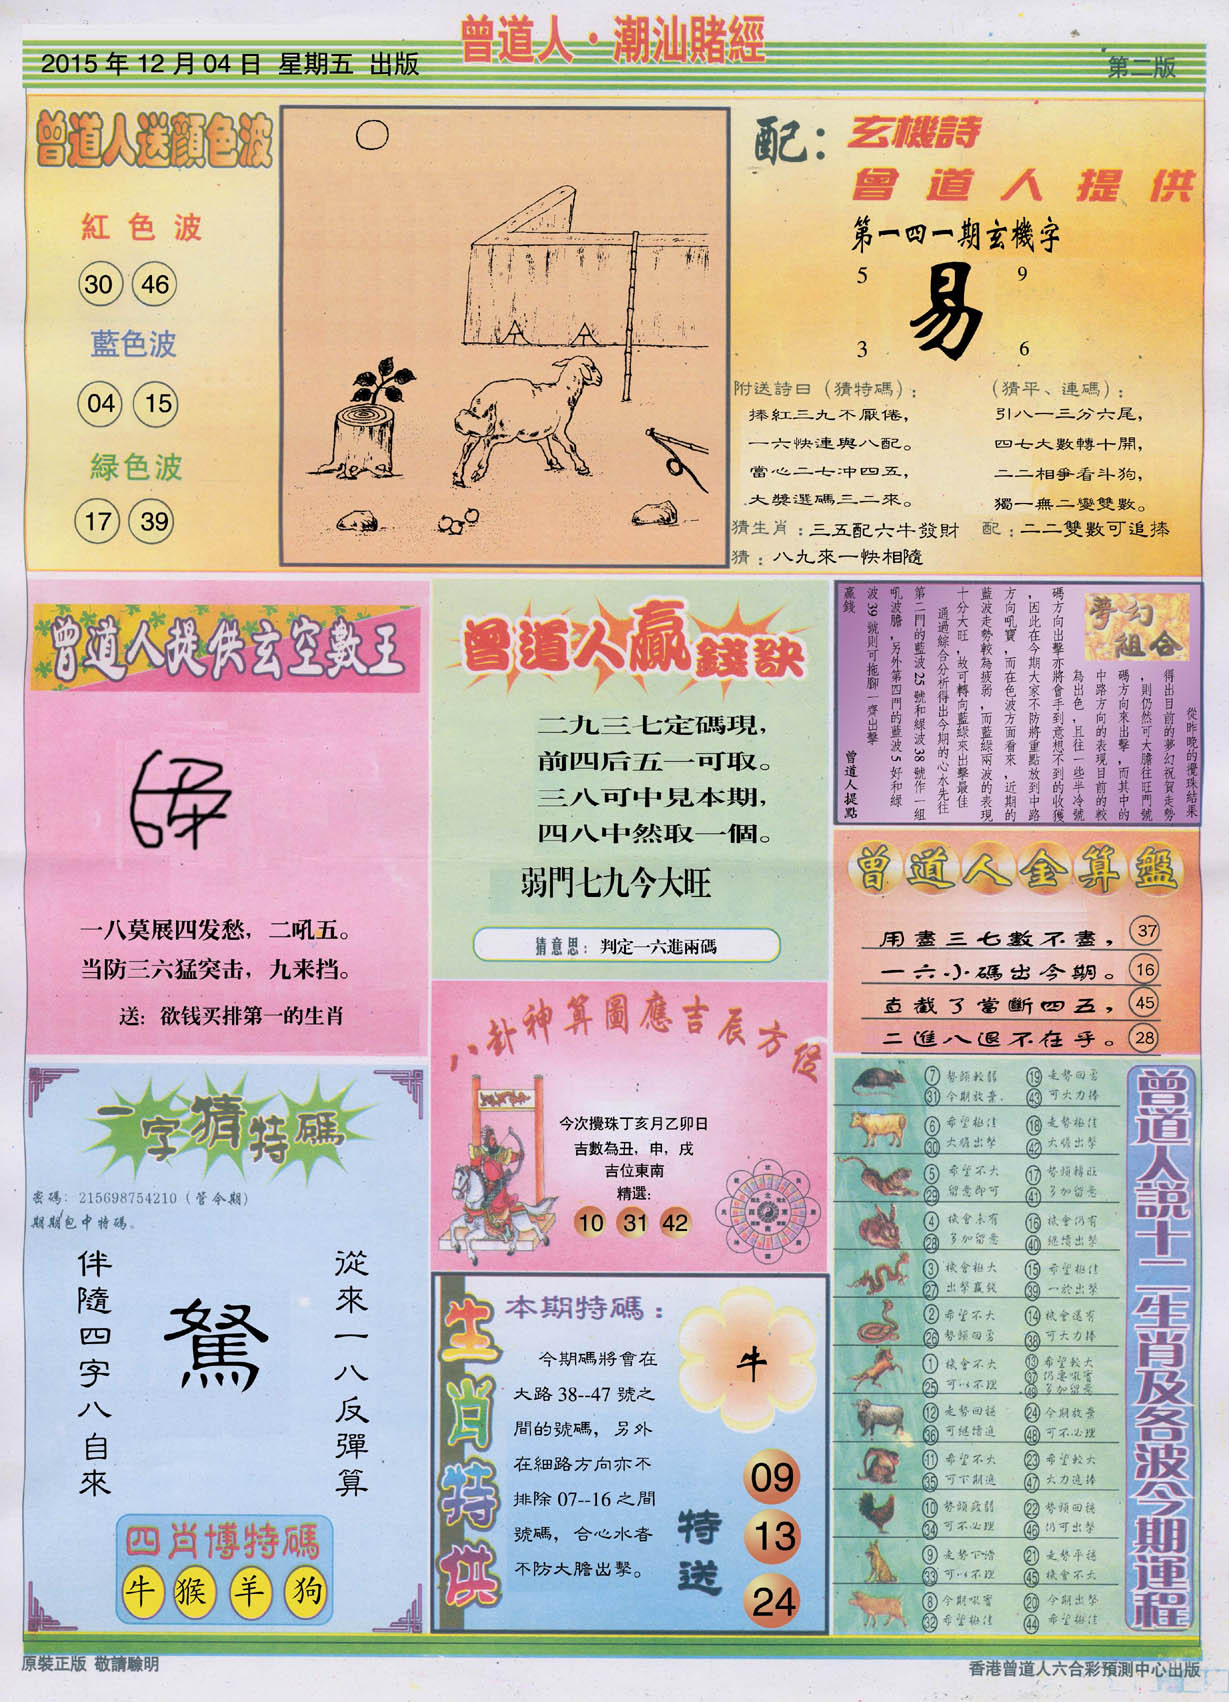 曾道人·潮汕賭經
2015年12月04日 星期五 出版
第二版
曾道人送顏色波
紅色波
30 46
藍色波
04 15
緑色波
17 39
配：玄機詩
曾道人提供
第一四一期玄機字
5 9
易
3 6
附送詩曰（猜特碼）：
捧紅三九不厭倦，
一六快連與八配。
當心二七沖四五，
大獎選碼三二來。
（猜平、連碼）：
引八一三分六尾，
四七大數轉十開，
二二相爭看斗狗，
獨一無二變雙數。
猜生肖：三五配六牛發財
配：二二雙數可追捧
猜：八九來一快相隨
曾道人提供玄空數王
一八莫展四发愁，二吼五。
当防三六猛突击，九来挡。
送：欲钱买排第一的生肖
曾道人贏錢訣
二九三七定碼現，
前四后五一可取。
三八可中見本期，
四八中然取一個。
弱門七九今大旺
猜意思：判定一六進兩碼
夢幻組合
從昨晚的攪珠結果
得出目前的夢幻祝賀走勢
，則仍然可大膽往旺門號
碼方向來出擊，而其中的
中路方向的表現目前的較
為出色，且往一些半冷號
碼方向出擊亦將會手到意想不到的收獲
，因此在今期大家不防將重點放到中路
方向吼寶，而在色波方面看來，近期的
藍波走勢較為疲弱，而藍綠兩波的表現
十分大旺，故可轉向藍綠來出擊最佳
通過綜合分析得出今期的心水先往
第二門的藍波25號和綠波38號作一組
吼波膽，另外第四門的藍波5好和綠
波39號則可拖腳一齊出擊
贏錢
曾道人提點
曾道人金算盤
用盡三七數不盡，37
一六小碼出今期。16
直截了當斷四五，45
二進八退不在乎。28
八卦神算圖應吉辰方位
今次攪珠丁亥月乙卯日
吉數為丑，申，戌
吉位東南
精選：
10 31 42
一字猜特碼
密碼：215698754210（管今期）
期期包中特碼。
從來一八反彈算
駑
伴隨四字八自來
四肖博特碼
牛 猴 羊 狗
生肖特供
本期特碼：
今期碼將會在
大路38--47號之
間的號碼，另外
在細路方向亦不
排除07--16之間
號碼，合心水者
不防大膽出擊。
牛
特送
09
13
24
曾道人説十二生肖及各波今期運程
7 勢頭較弱 19 走勢回勇
31 今期放棄 43 可大力捧
6 希望極佳 18 走勢極佳
30 大膽出擊 42 大膽出擊
5 希望不大 17 勢頭轉旺
29 留意即可 41 多加留意
4 機會未有 16 機會仍有
28 多加留意 40 繼續出擊
3 機會極大 15 希望極佳
27 出擊贏錢 39 一於出擊
2 希望不大 14 機會還有
26 勢頭回勇 38 可大力捧
1 機會不大 13 希望較大
25 可以不理 37 仍要吸寶
49 多加留意
12 走勢回穩 24 今期放棄
36 可繼續追 48 可不必理
11 希望不大 23 希望較大
35 可下期追 47 大力追捧
10 勢頭疲弱 22 勢頭回穩
34 可不必理 46 仍可出擊
9 走勢下滑 21 走勢平穩
33 可以不理 45 機會不大
8 今期吸寶 20 今期出擊
32 希望極佳 44 希望極佳
原裝正版 敬請驗明
香港曾道人六合彩預測中心出版